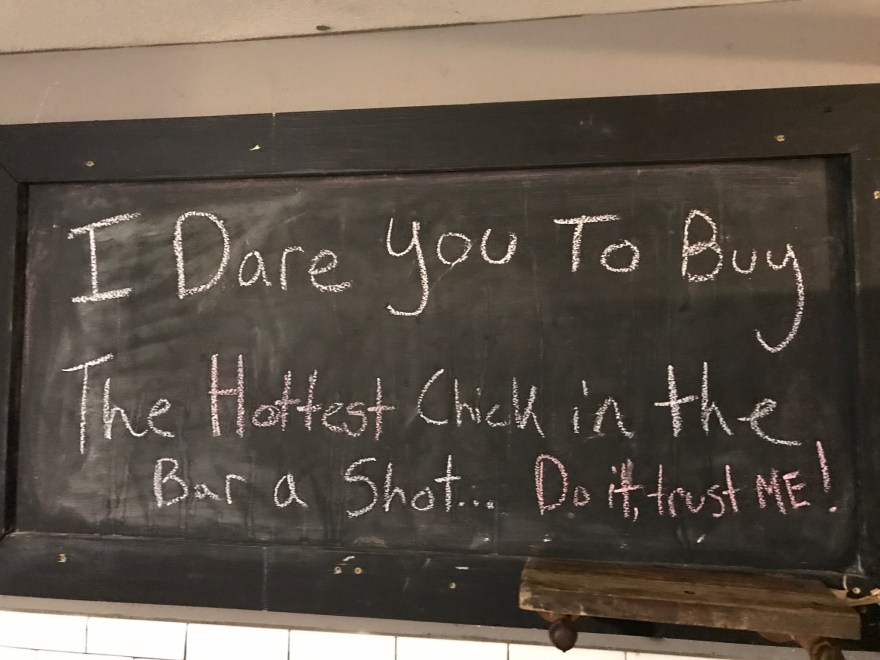 I Dare you To Buy
The Hottest Chick in the
Bar a Shot... Do it, trust ME!